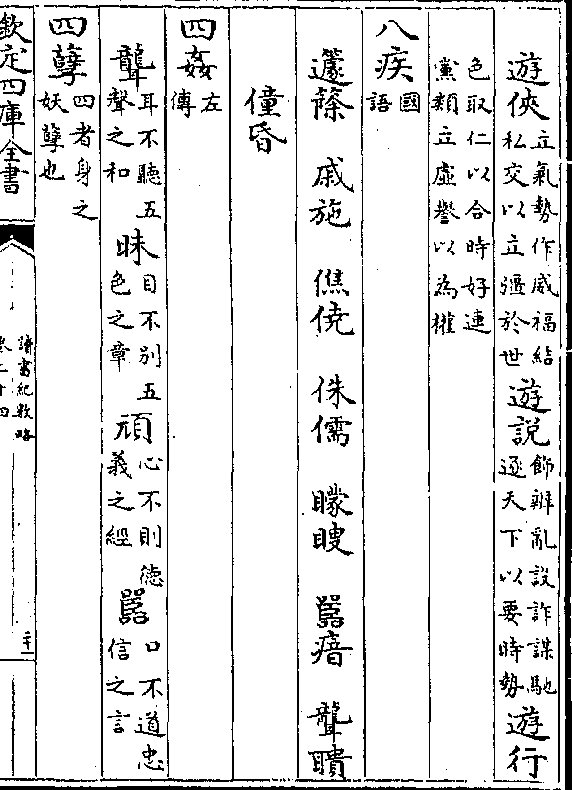 遊俠立氣勢作威福結私交以立彊於世遊說飾辨亂設詐謀馳逐天下以要時勢遊行
色取仁以合時好連黨類立虛譽以為權
八疾國語
籧篨 戚施 僬僥 侏儒 矇瞍 嚚瘖 聾聵
僮昏
四姦左傳
聾耳不聽五聲之和昧目不別五色之章頑心不則德義之經嚚口不道忠信之言
四孽四者身之妖孽也
欽定四庫全書
讀書紀數略
卷二十四